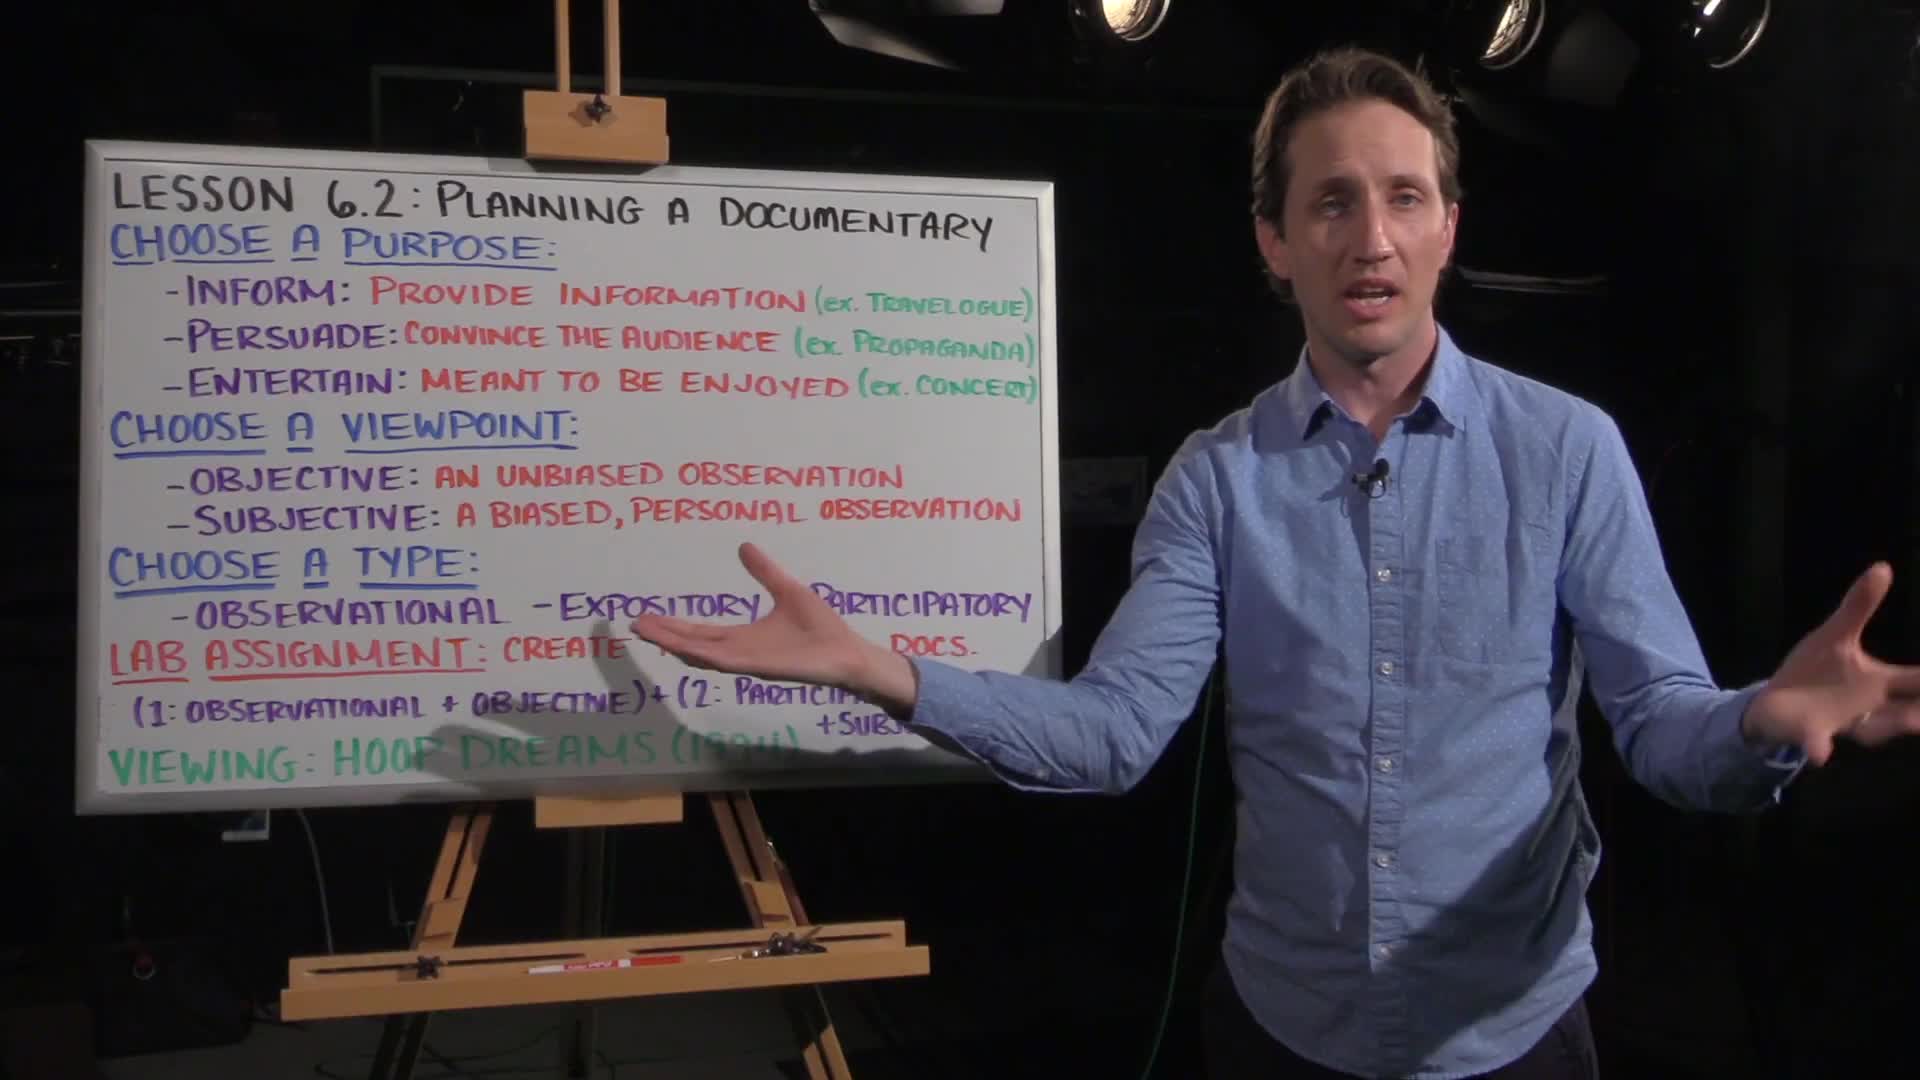 LESSON 6.2: PLANNING A DOCUMENTARY
CHOOSE A PURPOSE:
- INFORM: PROVIDE INFORMATION (ex. TRAVELOGUE)
- PERSUADE: CONVINCE THE AUDIENCE (ex. PROPAGANDA)
- ENTERTAIN: MEANT TO BE ENJOYED (ex. CONCERT)
CHOOSE A VIEWPOINT:
- OBJECTIVE: AN UNBIASED OBSERVATION
- SUBJECTIVE: A BIASED, PERSONAL OBSERVATION
CHOOSE A TYPE:
- OBSERVATIONAL - EXPOSITORY PARTICIPATORY
LAB ASSIGNMENT: CREATE DOCS.
(1: OBSERVATIONAL + OBJECTIVE) + (2:
+
VIEWING: HOOP DREAMS (1994)